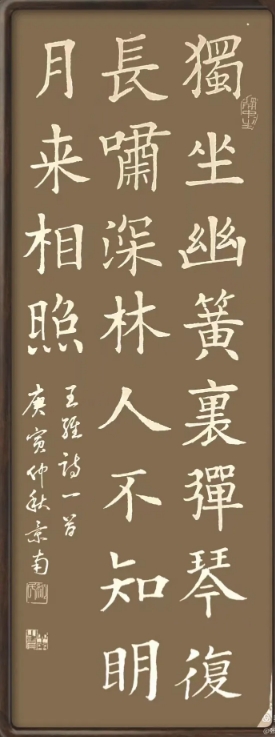 獨坐幽簧裏彈琴復
長嘯深林人不知明
月来相照
王維詩一首
庚寅仲秋京南